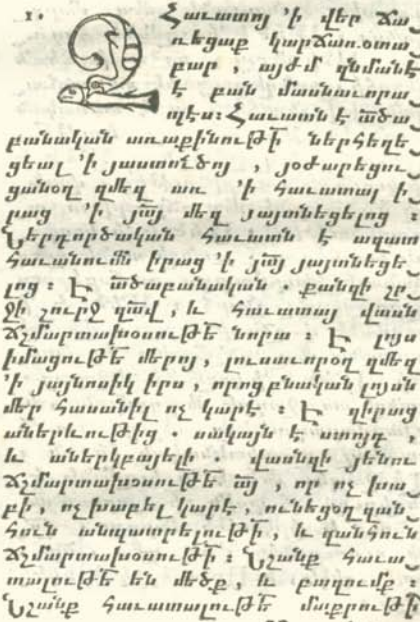 1. Զհաւատոյ 'ի վեր ճա
ռեցաք կարճառօտա
բար, այժմ զնմանէ
է բան մասնաւորա
պէս: Հաւատն է ա͞ծա
բանական առաքինութի՛ ներհեղե
ցեալ 'ի յաստուծոյ, յօժարեցու
ցանօղ զմեզ առ 'ի հաւատալ ի
րաց 'ի յա͞յ մեզ յայտնեցելոց:
Ներգործական հաւատն է ազատ
հաւանումն իրաց 'ի յա͞յ յայտնեցե
լոց: Է ա͞ծաբանական. քանզի շր
ջի շուրջ զա͞վ, և հաւատայ վասն
ճշմարտախօսութե՛ նորա: Է լոյս
իմացութե՛ մերոյ, լուսաւորօղ զմեզ
'ի յայնոսիկ իրս, որոց բնական լոյսն
մեր հասանիլ ոչ կարէ: Է զիրաց
աներևութից. սակայն է ստոյգ,
և աներկբայելի. վասնզի յենու
ճշմարտախօսութե՛ ա͞յ, որ ոչ խա
բի, ոչ խաբել կարէ, ունեցօղ զան
հուն անպատրելութի, և զանհուն
ճշմարտախօսութի: Նշանք հաւա
տալութե՛ են մեծք, և բազումք:
Նշանք հաւատալութե՛ մաքրութի